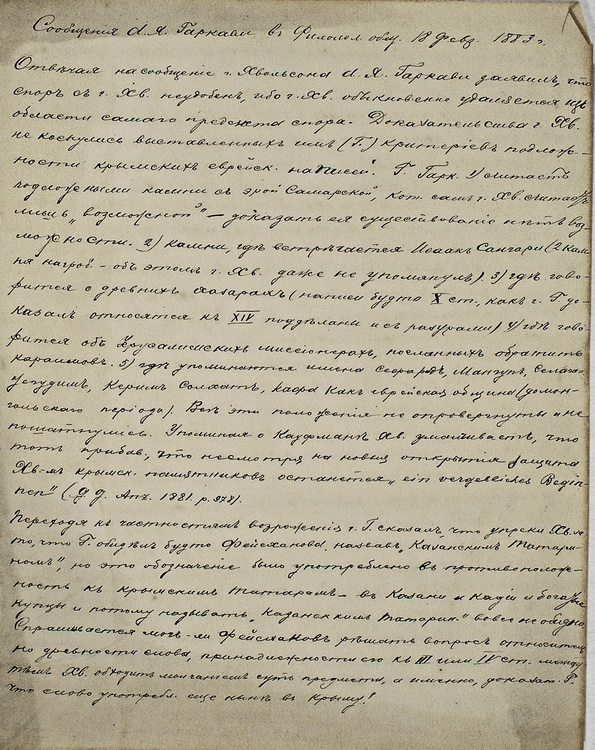 Сообщенія А. Я. Гаркави въ Филолог. общ. 18 Февр. 1883 г.
Отвѣчая на сообщеніе г. Хвольсона А. Я. Гаркави заявилъ, что
споръ съ г. Хв. неудобенъ, ибо г. Хв. обыкновенно удаляется изъ
области самаго предмета спора. Доказательства г. Хв.
не коснулись выставленныхъ имъ (Г.) критеріевъ подлож-
ности крымскихъ еврейск. надписей. Г. Гарк. 1) считаетъ
подложными камни съ эрой Самарской, кот. самъ г. Хв. считаетъ
лишь „возможной" — доказать ея существованіе нѣтъ воз-
можности. 2) камни, гдѣ встрѣчается Исаакъ Сангари (2 кам-
ня нагроб. - объ этомъ г. Хв. даже не упомянулъ). 3) гдѣ гово-
рится о древнихъ хазарахъ (надписи будто X ст., какъ г. Г. до-
казалъ относятся къ XIV поддѣланы и съ разурами) 4) гдѣ гово-
рится объ Іерусалимскихъ миссіонерахъ, посланныхъ обратить
караимовъ. 5) гдѣ упоминаются имена Сефарадъ, Мангупъ, Села га-
Іегудимъ, Керимъ Солхатъ, Кафа какъ еврейская община (домон-
гольскаго періода). Всѣ эти положенія не опровергнуты и не
пошатнулись. Упоминая о Кауфманѣ Хв. умалчиваетъ, что
тотъ прибав., что несмотря на новыя открытія защита
Хв-мъ крымск. памятниковъ останется „ein vergebliches Begin-
nen" ( Anz. 1881. p. 978).
Переходя къ частностямъ возраженія г. Г. сказалъ, что упреки Хв.
то, что Г. обидѣлъ будто Фейсханова, назвавъ „Казанскимъ Татари-
номъ", но это обозначеніе было употреблено въ противополож-
ность къ крымскимъ татарамъ - въ Казани и Кадіи и богатые
купцы и потому называть „Казанскимъ татарин." вовсе не обидно.
Спрашивается могъ-ли Фейсхановъ рѣшать вопросъ относитель-
но древности слова, принадлежности его къ III или IV ст. между
тѣмъ Хв. обходитъ молчаніемъ суть предмета, а именно, доказат. Г.
что слово употребл. еще нынѣ въ Крыму!